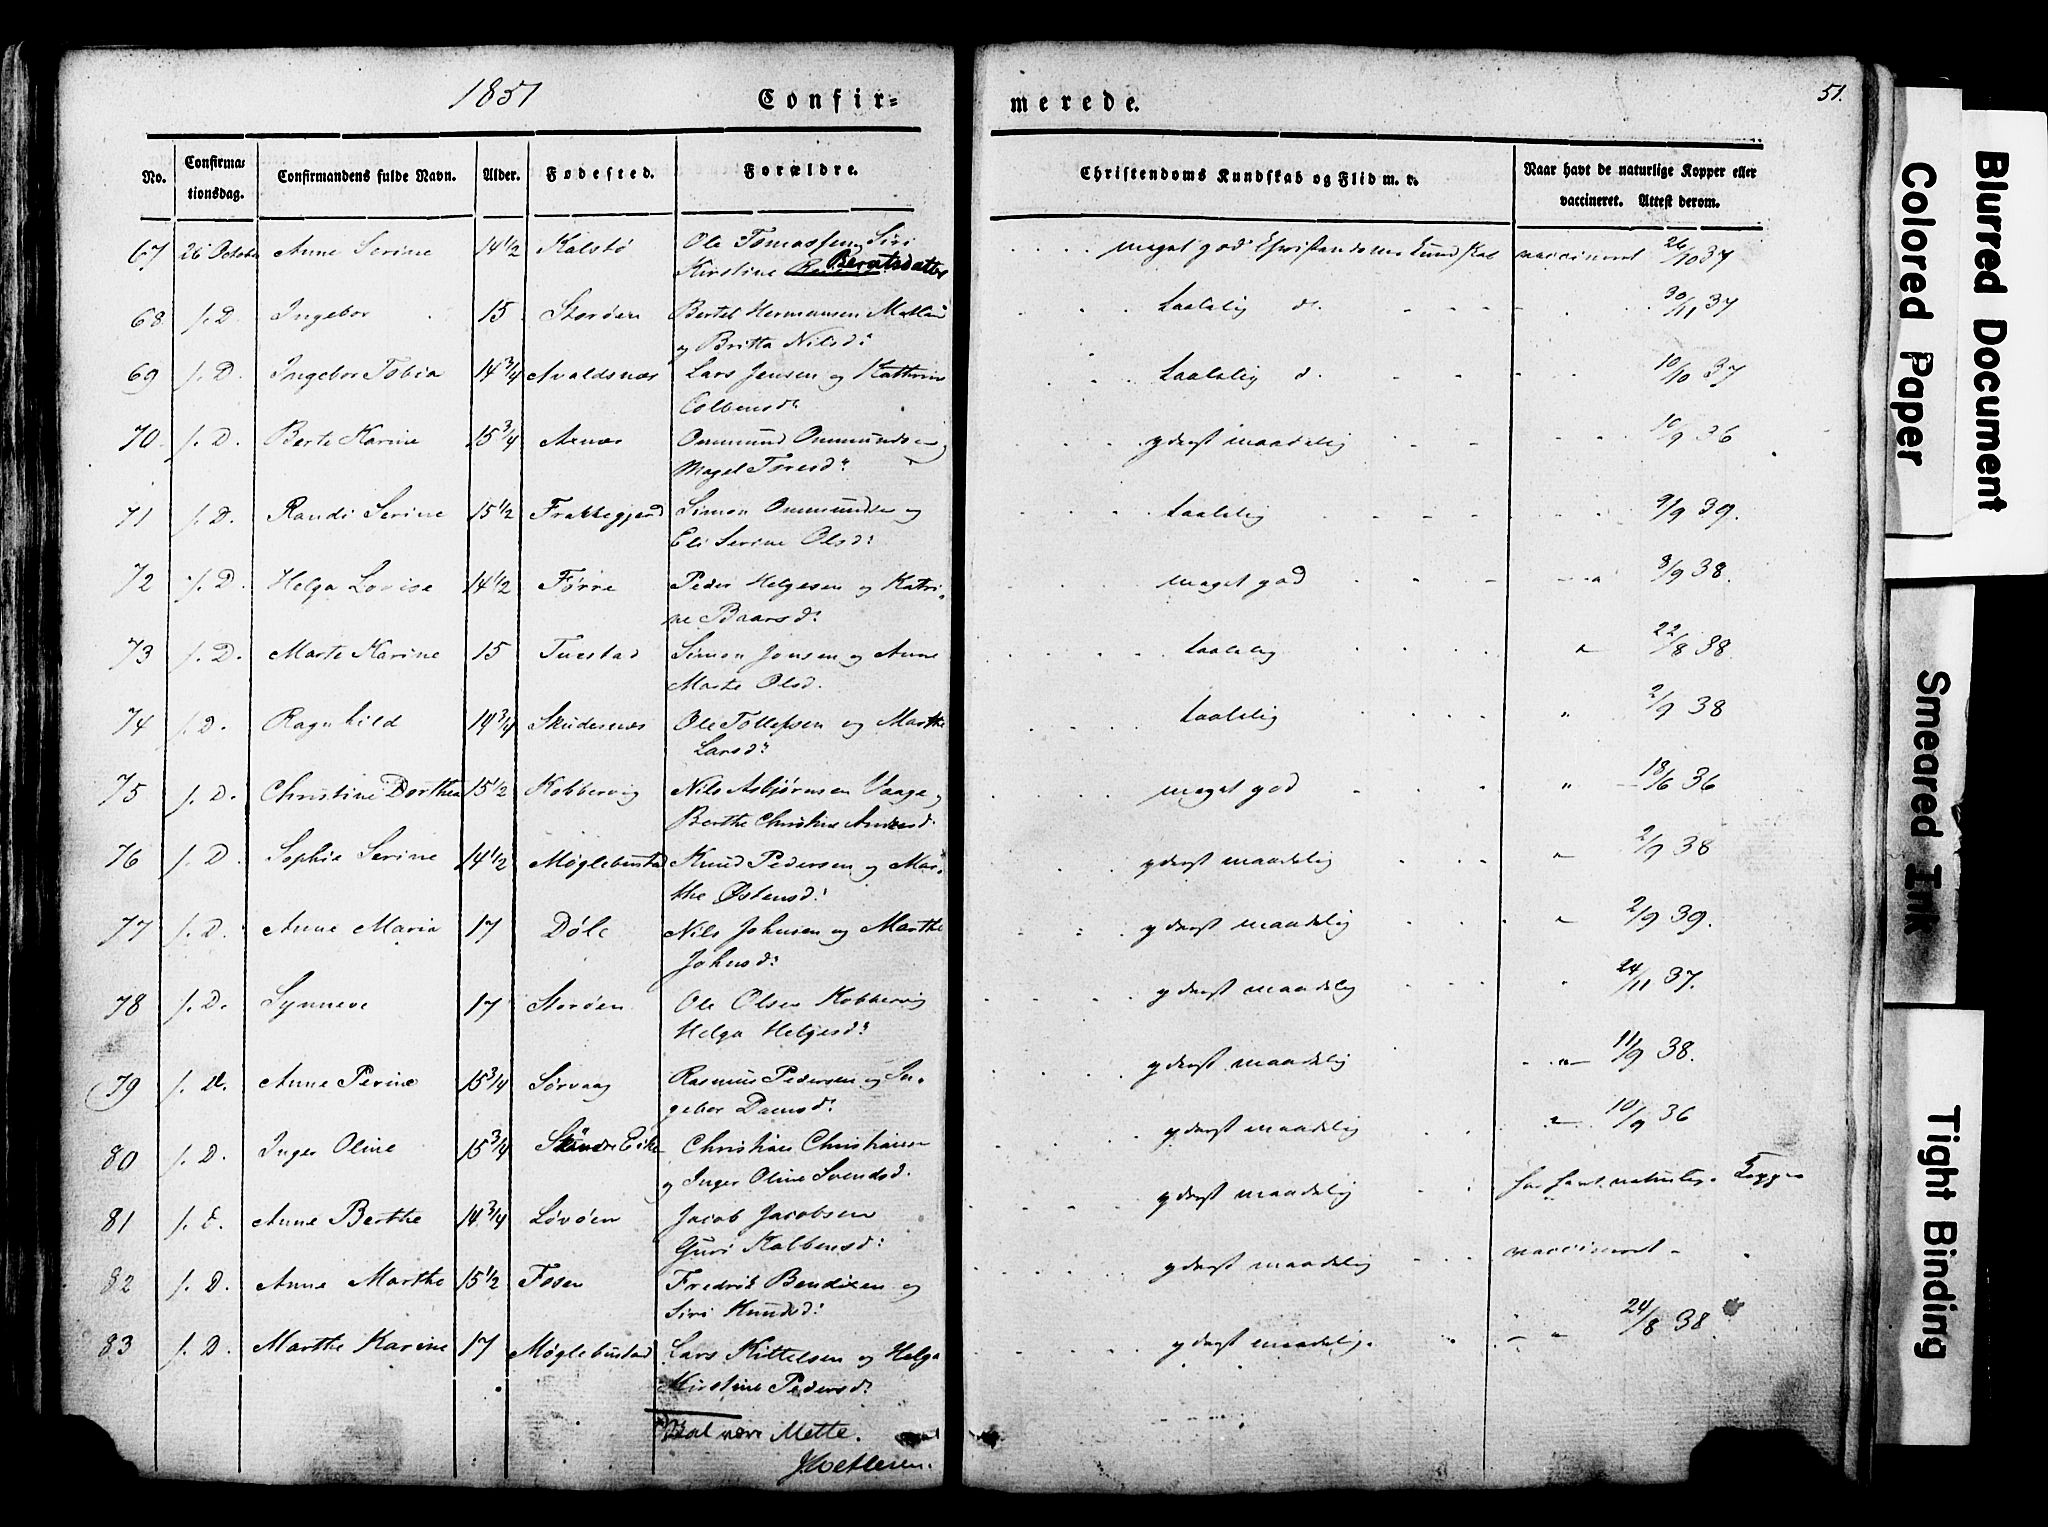 1851
Confir=
merede.
51.
No.
Confirma-
tionsdag.
Confirmandens fulde Navn.
Alder.
Fødested.
Forældre.
Christendoms Kundskab og Flid m. v.
Naar havt de naturlige Kopper eller
vaccineret. Attest derom.
67 26 October Anne Serine 14 1/2 Kalstø Ole Tomassen Siri meget god Christendoms Kundskab vaccineret 26/10 37
Kirstine Berntsdatter
68 f. D. Ingebor 15 Storöen Bertel Hermansen taalelig d. 30/11 37
og Britta Nilsd:
69 f. D. Ingebor Tobia 14 3/4 Avaldsnæs Lars Jensen og Kathrine taalelig d. 10/10 37
Colbensd:
70. f. D. Berte Karine 15 3/4 Aenæs Ommund Ommundsen yderst maadelig 10/9 36
Magel Toresd:
71 f. D. Randi Serine 15 1/2 Frakkegjerd Simon Ommundsen og taalelig 9/9 39.
Eli Serine Olsd:
72 f. D. Helga Lovise 14 1/2 Førre Peder Helgesen og Katri- meget god 8/9 38.
ne Baarsd:
73 f. D. Marte Karine 15 Tuestad Simon Jonsen og Anne taalelig 22/8 38.
Marte Olsd.
74 f. D. Ragnhild 14 3/4 Skudesnæs Ole Tollefsen og Marthe taalelig " 2/9 38
Larsd:
75 f. D. Christine Dorthea 15 1/2 Kobbervig Nils Asbjørnsen Vaage og meget god " 18/6 36
Berthe Christine Andersd.
76 f. D. Sophie Serine 14 1/2 Møglebustad Knud Pedersen og Mar- yderst maadelig " 2/9 38
the Østensd:
77 f. D. Anne Maria 17 Døle Nils Johnsen og Marthe yderst maadelig " 2/9 39.
Johnsd:
78 f. D. Synneve 17 Storöen Ole Olsen Kobbervig yderst maadelig " 24/11 37.
Helga Helgesd:
79 f. D. Anne Perine 15 3/4 Sørvaag Rasmus Pedersen og In- yderst maadelig " 11/9 38.
gebor Damsd:
80 f. D. Inger Oline 15 3/4 Christian Christiansen yderst maadelig " 10/9 36
og Inger Oline Svendsd.
81 f. D. Anne Berthe 14 3/4 Løvöen Jacob Jacobsen yderst maadelig har havt naturlige Kopper
Guri Kolbensd:
82 f. D. Anne Marthe 15 1/2 Fosen Fredrik Bendixen og yderst maadelig vaccineret
Siri Knudsd:
83 f. D. Marthe Karine 17 Møglebustad Lars Kittelsen og Helga yderst maadelig. " 24/8 38.
Kirstine Pedersd:
Skal være Mette.
Blurred Document
Colored Paper
Smeared Ink
Tight Binding